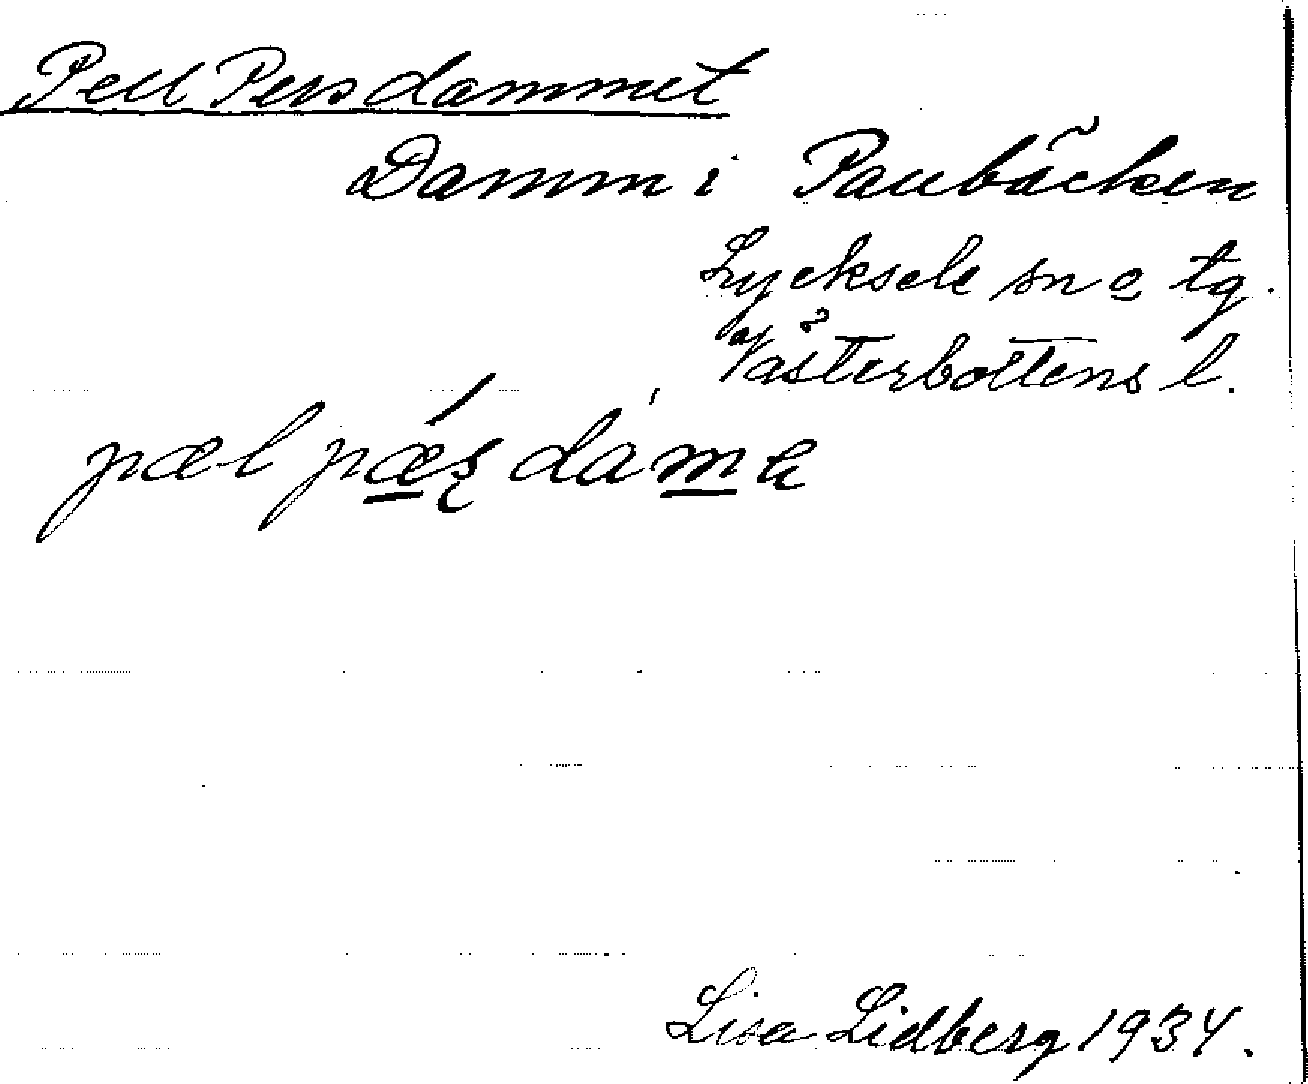 Pell Persdammet
Damm i Paubäcken
Lycksele sn o tg.
Västerbottens l.
pæl pǽʂ dám̲a
Lisa Lidberg 1934.